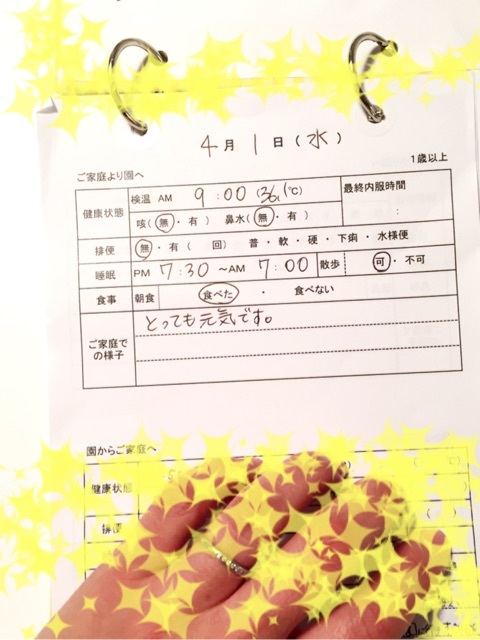 4月1日(水)
1歳以上
ご家庭より園へ
健康状態 検温 AM 9:00 (36.1℃) 最終内服時間
咳(無・有) 鼻水(無・有) :
排便 無・有( 回) 普・軟・硬・下痢・水様便
睡眠 PM 7:30 ~AM 7:00 散歩 可・不可
食事 朝食 食べた・食べない
ご家庭での様子 とっても元気です。
園からご家庭へ
健康状態
排便